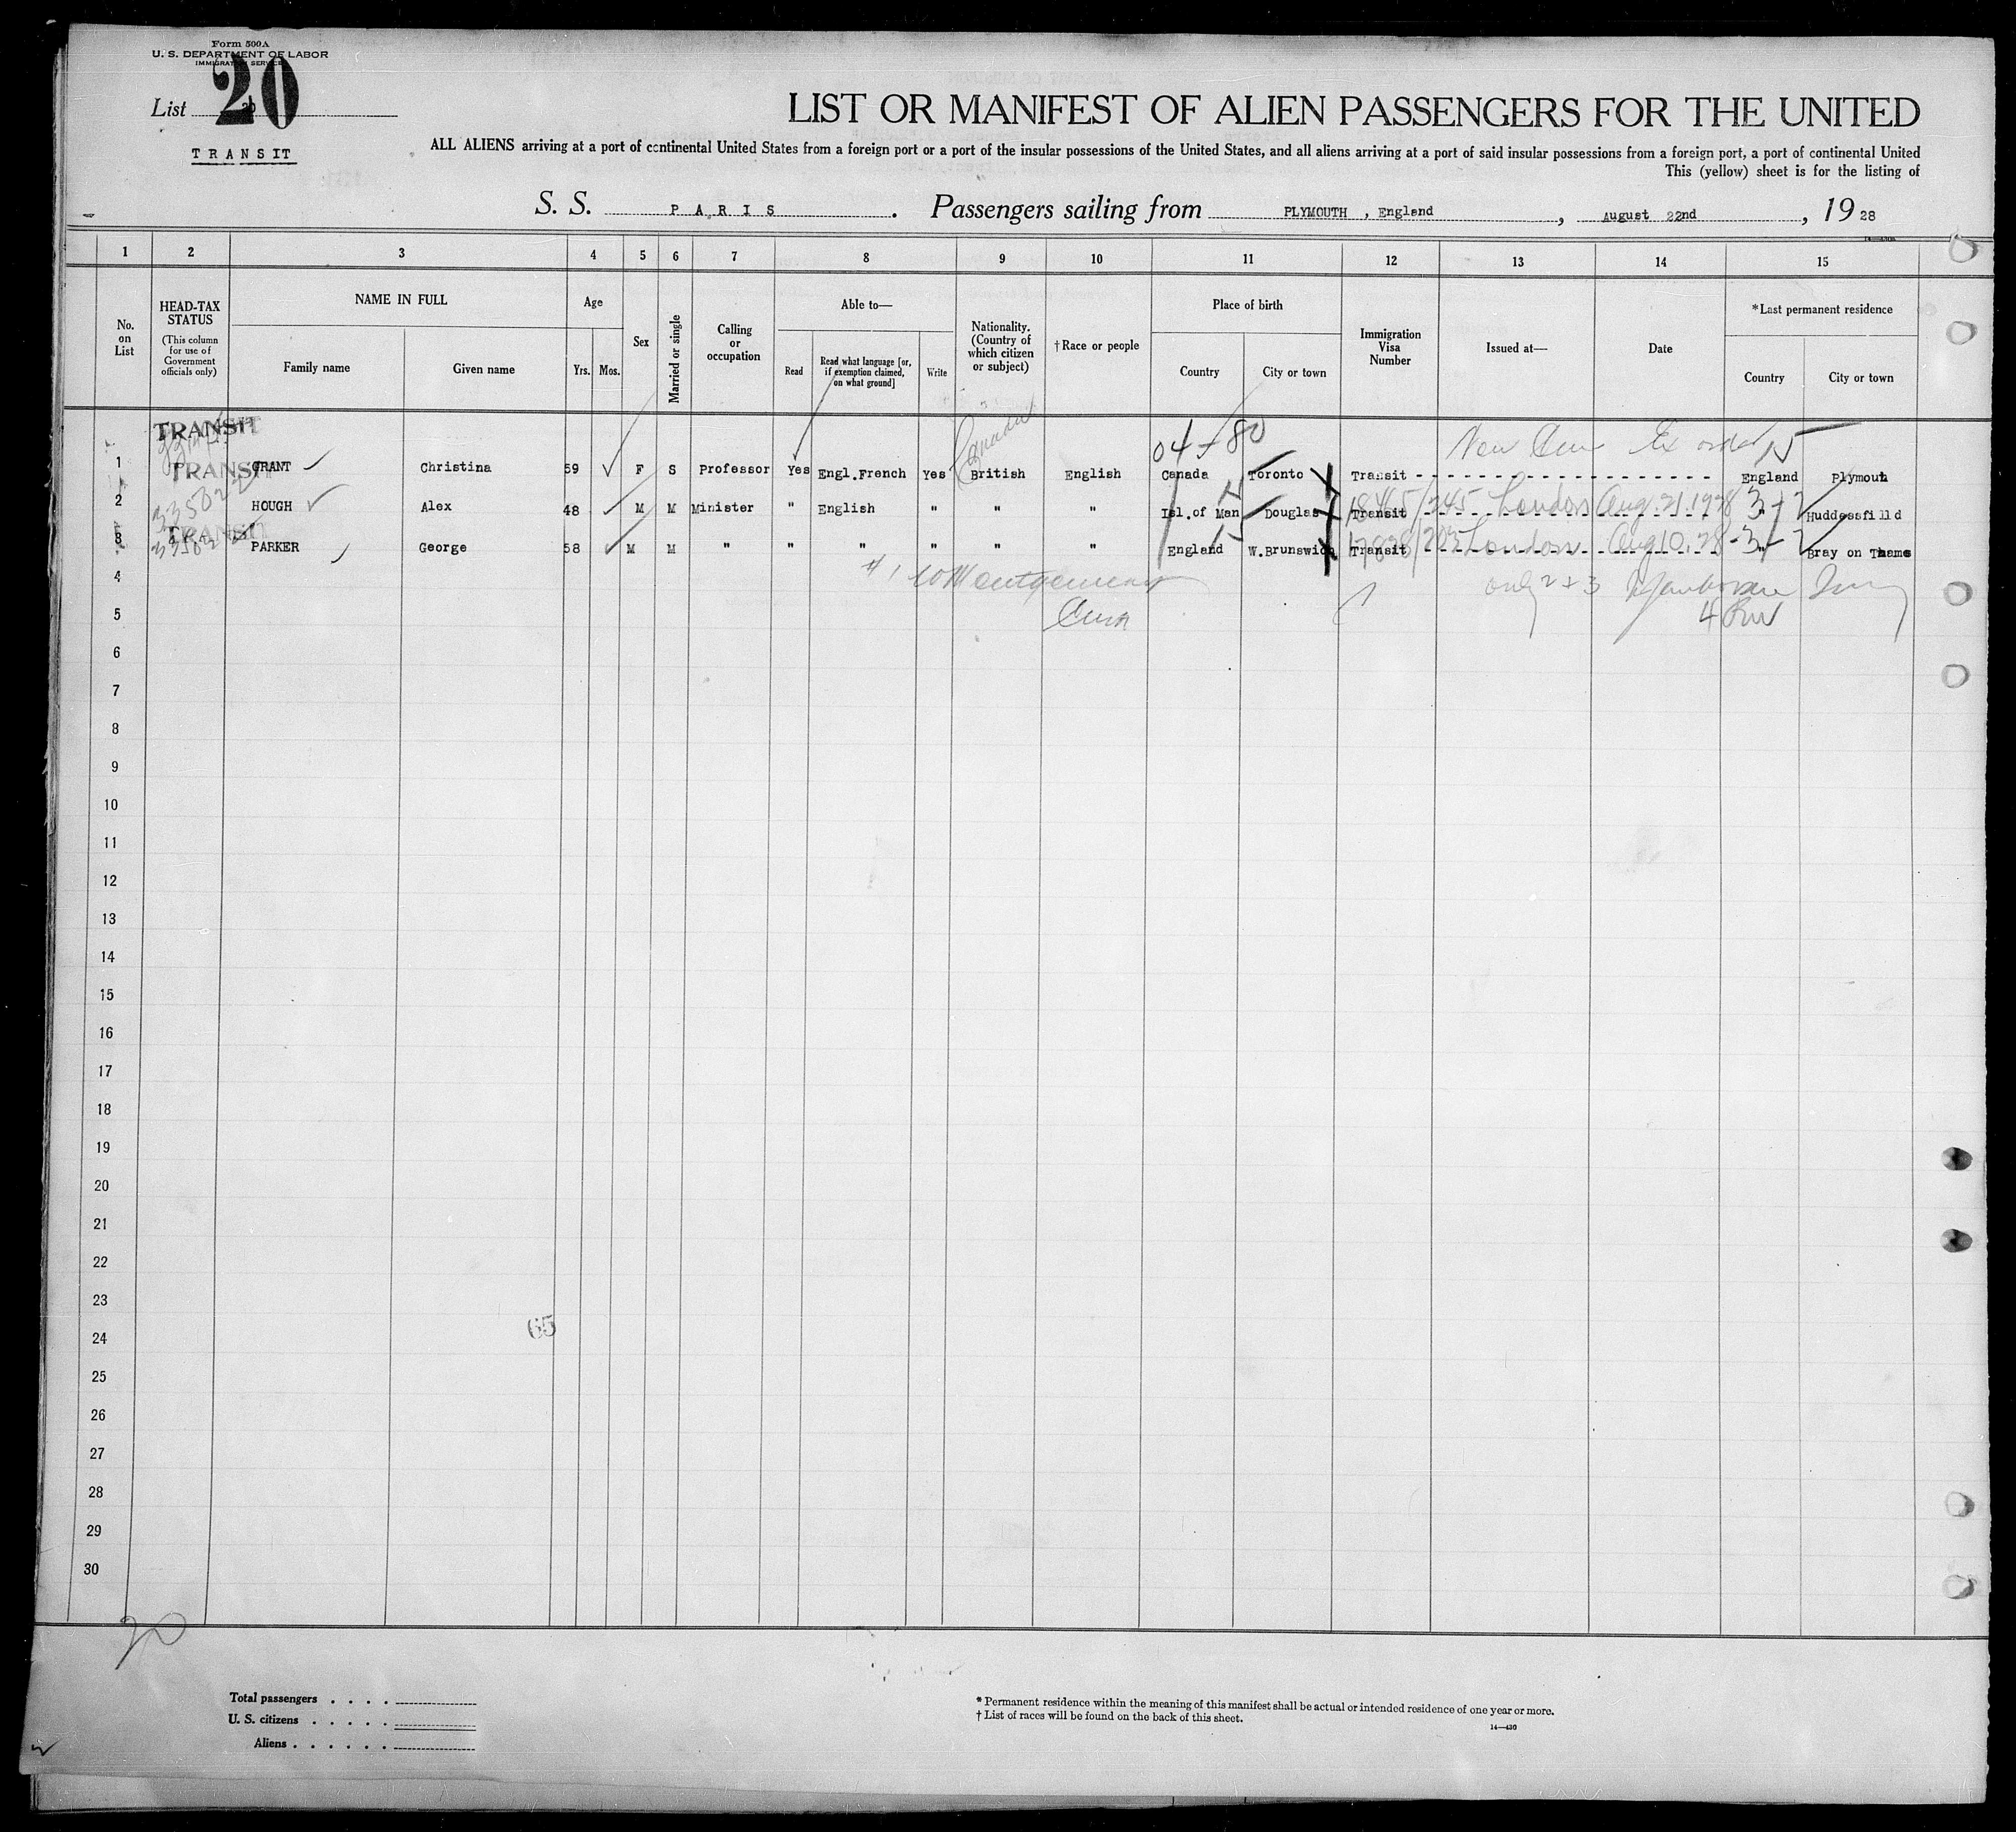 Form 500A
U. S. DEPARTMENT OF LABOR
IMMIGRATION SERVICE
List 20
20
TRANSIT
LIST OR MANIFEST OF ALIEN PASSENGERS FOR THE UNITED
ALL ALIENS arriving at a port of continental United States from a foreign port or a port of the insular possessions of the United States, and all aliens arriving at a port of said insular possessions from a foreign port, a port of continental United
This (yellow) sheet is for the listing of
S. S. PARIS. Passengers sailing from PLYMOUTH, England, August 22nd, 1928
1 2 3 4 5 6 7 8 9 10 11 12 13 14 15
No. on List
HEAD-TAX STATUS
(This column for use of Government officials only)
NAME IN FULL
Family name Given name
Age
Yrs. Mos.
Sex
Married or single
Calling or occupation
Able to—
Read
Read what language [or, if exemption claimed, on what ground]
Write
Nationality. (Country of which citizen or subject)
†Race or people
Place of birth
Country City or town
Immigration Visa Number
Issued at—
Date
*Last permanent residence
Country City or town
TRANSIT
Canada
04-80
New 15
1 TRANSIT GRANT Christina 59 F S Professor Yes Engl.French Yes British English Canada Toronto Transit England Plymouth
2 335022 HOUGH Alex 48 M M Minister " English " " " Isl.of Man Douglas Transit 18465/245 London Aug. 21, 1928 " 3-2 Huddessfilld
TRANSIT
3 PARKER George 58 M M " " " " " " England W.Brunswich Transit London Aug 10, 28 " 3-2 Bray on Thams
4 #1 Montgomery only 2 + 3
5
6
7
8
9
10
11
12
13
14
15
16
17
18
19
20
21
22
23
65
24
25
26
27
28
29
30
20
Total passengers
U. S. citizens
Aliens
* Permanent residence within the meaning of this manifest shall be actual or intended residence of one year or more.
† List of races will be found on the back of this sheet.
14—430